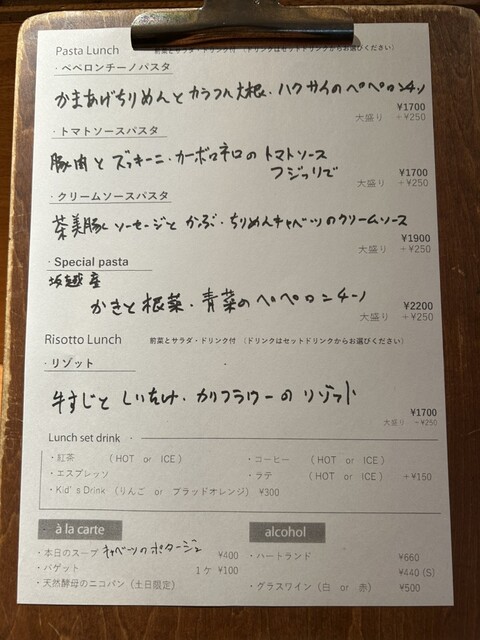 Pasta Lunch 前菜とサラダ・ドリンク付 (ドリンクはセットドリンクからお選びください)
・ペペロンチーノパスタ
かまあげちりめんとカラフル大根・ハクサイのペペロンチーノ
¥1700
大盛り +¥250
・トマトソースパスタ
豚肉とズッキーニ・カーボロネロのトマトソース
フジッリで
¥1700
大盛り +¥250
・クリームソースパスタ
茶美豚ソーセージとかぶ・ちりめんキャベツのクリームソース
¥1900
大盛り +¥250
・Special pasta
坂越産
かきと根菜・青菜のペペロンチーノ
¥2200
大盛り +¥250
Risotto Lunch 前菜とサラダ・ドリンク付 (ドリンクはセットドリンクからお選びください)
・リゾット
牛すじとしいたけ・カリフラワーのリゾット
¥1700
大盛り +¥250
Lunch set drink ・
・紅茶 (HOT or ICE)
・コーヒー (HOT or ICE)
・エスプレッソ
・ラテ (HOT or ICE) +¥150
・Kid's Drink (りんご or ブラッドオレンジ) ¥300
à la carte
・本日のスープ キャベツのポタージュ ¥400
・バゲット 1ケ ¥100
・天然酵母のニコパン (土日限定)
alcohol
・ハートランド ¥660
¥440 (S)
・グラスワイン (白 or 赤) ¥500